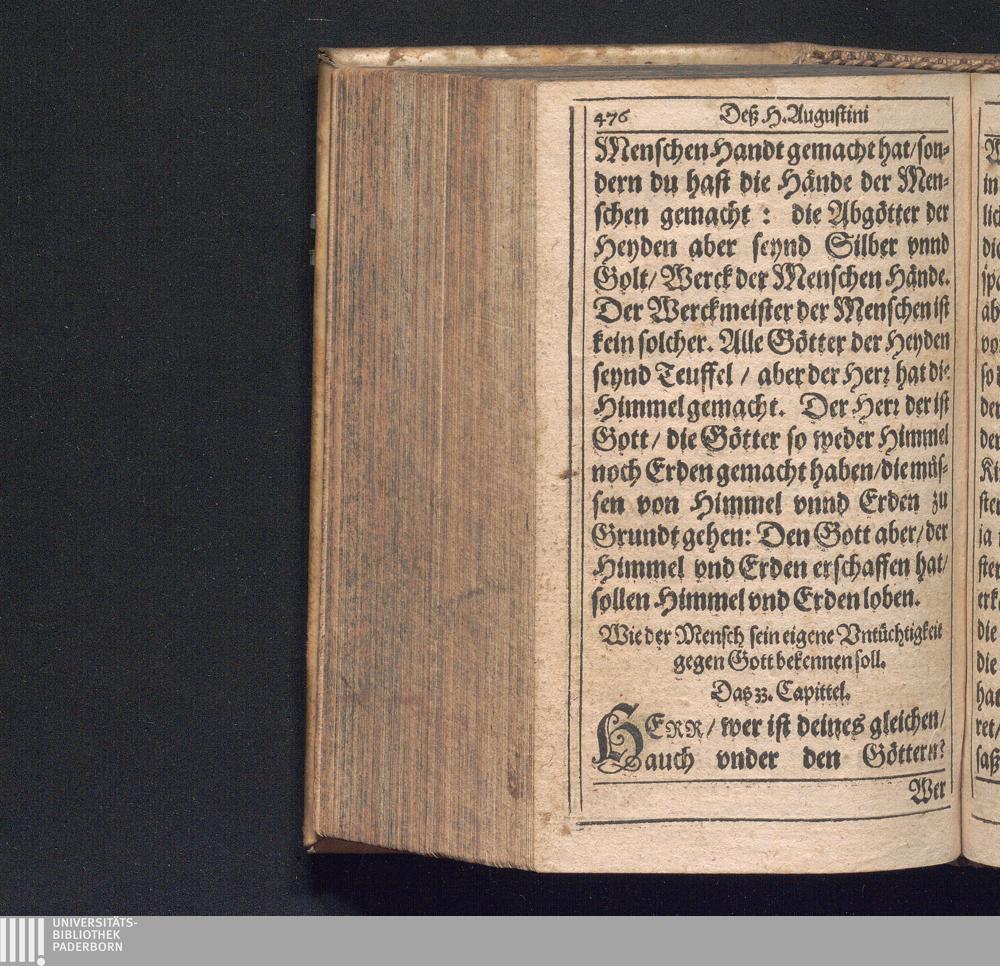 476 Deß H. Augustini
Menschen Handt gemacht hat/ son-
dern du hast die Hände der Men-
schen gemacht : die Abgötter der
Heyden aber seynd Silber vnnd
Golt/ Werck der Menschen Hände.
Der Werckmeister der Menschen ist
kein solcher. Alle Götter der Heyden
seynd Teuffel / aber der Herr hat die
Himmel gemacht. Der Herr der ist
Gott/ die Götter so weder Himmel
noch Erden gemacht haben/ die müs-
sen von Himmel vnnd Erden zu
Grundt gehen: Den Gott aber/ der
Himmel vnd Erden erschaffen hat/
sollen Himmel vnd Erden loben.
Wie der Mensch sein eigene Vntüchtigkeit
gegen Gott bekennen soll.
Das 33. Capittel.
HERR/ wer ist deines gleichen/
auch vnder den Göttern?
Wer
in
die
ab
der
der
ja
die
die
UNIVERSITÄTS-
BIBLIOTHEK
PADERBORN